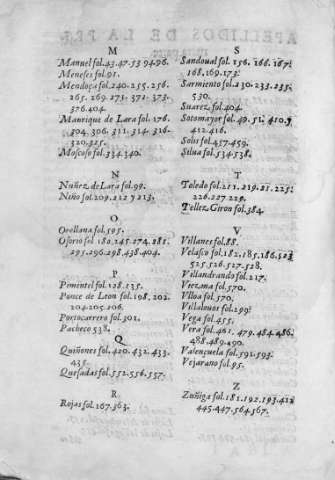 M
Manuel fol. 43. 47. 53 94. 96.
Meneses fol. 91.
Mendoça fol. 240. 255. 256.
265. 269. 271. 372. 373.
376. 404.
Manrique de Lara fol. 176
304. 306. 311. 314. 316.
320. 325.
Moscoso fol. 334. 340.
N
Nuñez de Lara fol. 99.
Niño fol. 209. 212 y 213.
O
Orellana fol. 595.
Osorio fol. 180. 245. 274. 281.
295. 296. 298. 438. 404.
P
Pimentel fol. 128. 135.
Ponce de Leon fol. 198. 202.
204. 205. 206.
Portocarrero fol. 302.
Pacheco 538.
Q
Quiñones fol. 420. 432. 433.
435.
Quesadas fol. 552. 556. 557.
R
Rojas fol. 167. 363.
S
Sandoual fol. 156. 166. 167.
168. 169. 173.
Sarmiento fol. 230. 233. 235.
530.
Suarez fol. 404.
Sotomayor fol. 49. 51. 410.
412. 416.
Solis fol. 457. 459.
Silua fol. 534. 538.
T
Toledo fol. 211. 219. 221. 225.
226. 227 229.
Tellez Giron fol. 384.
V
Villanes fol. 88.
Velasco fol. 182. 185. 186. 523
525. 526. 527. 528.
Villandrando fol. 217.
Viezma fol. 570.
Vlloa fol. 570.
Villalobos fol. 299.
Vega fol. 455.
Vera fol. 461. 479. 484. 486.
488. 489. 490.
Valençuela fol. 592. 593.
Vejarano fol. 95.
Z
Zuñiga fol. 181. 192. 193. 412
445. 447. 564. 567.